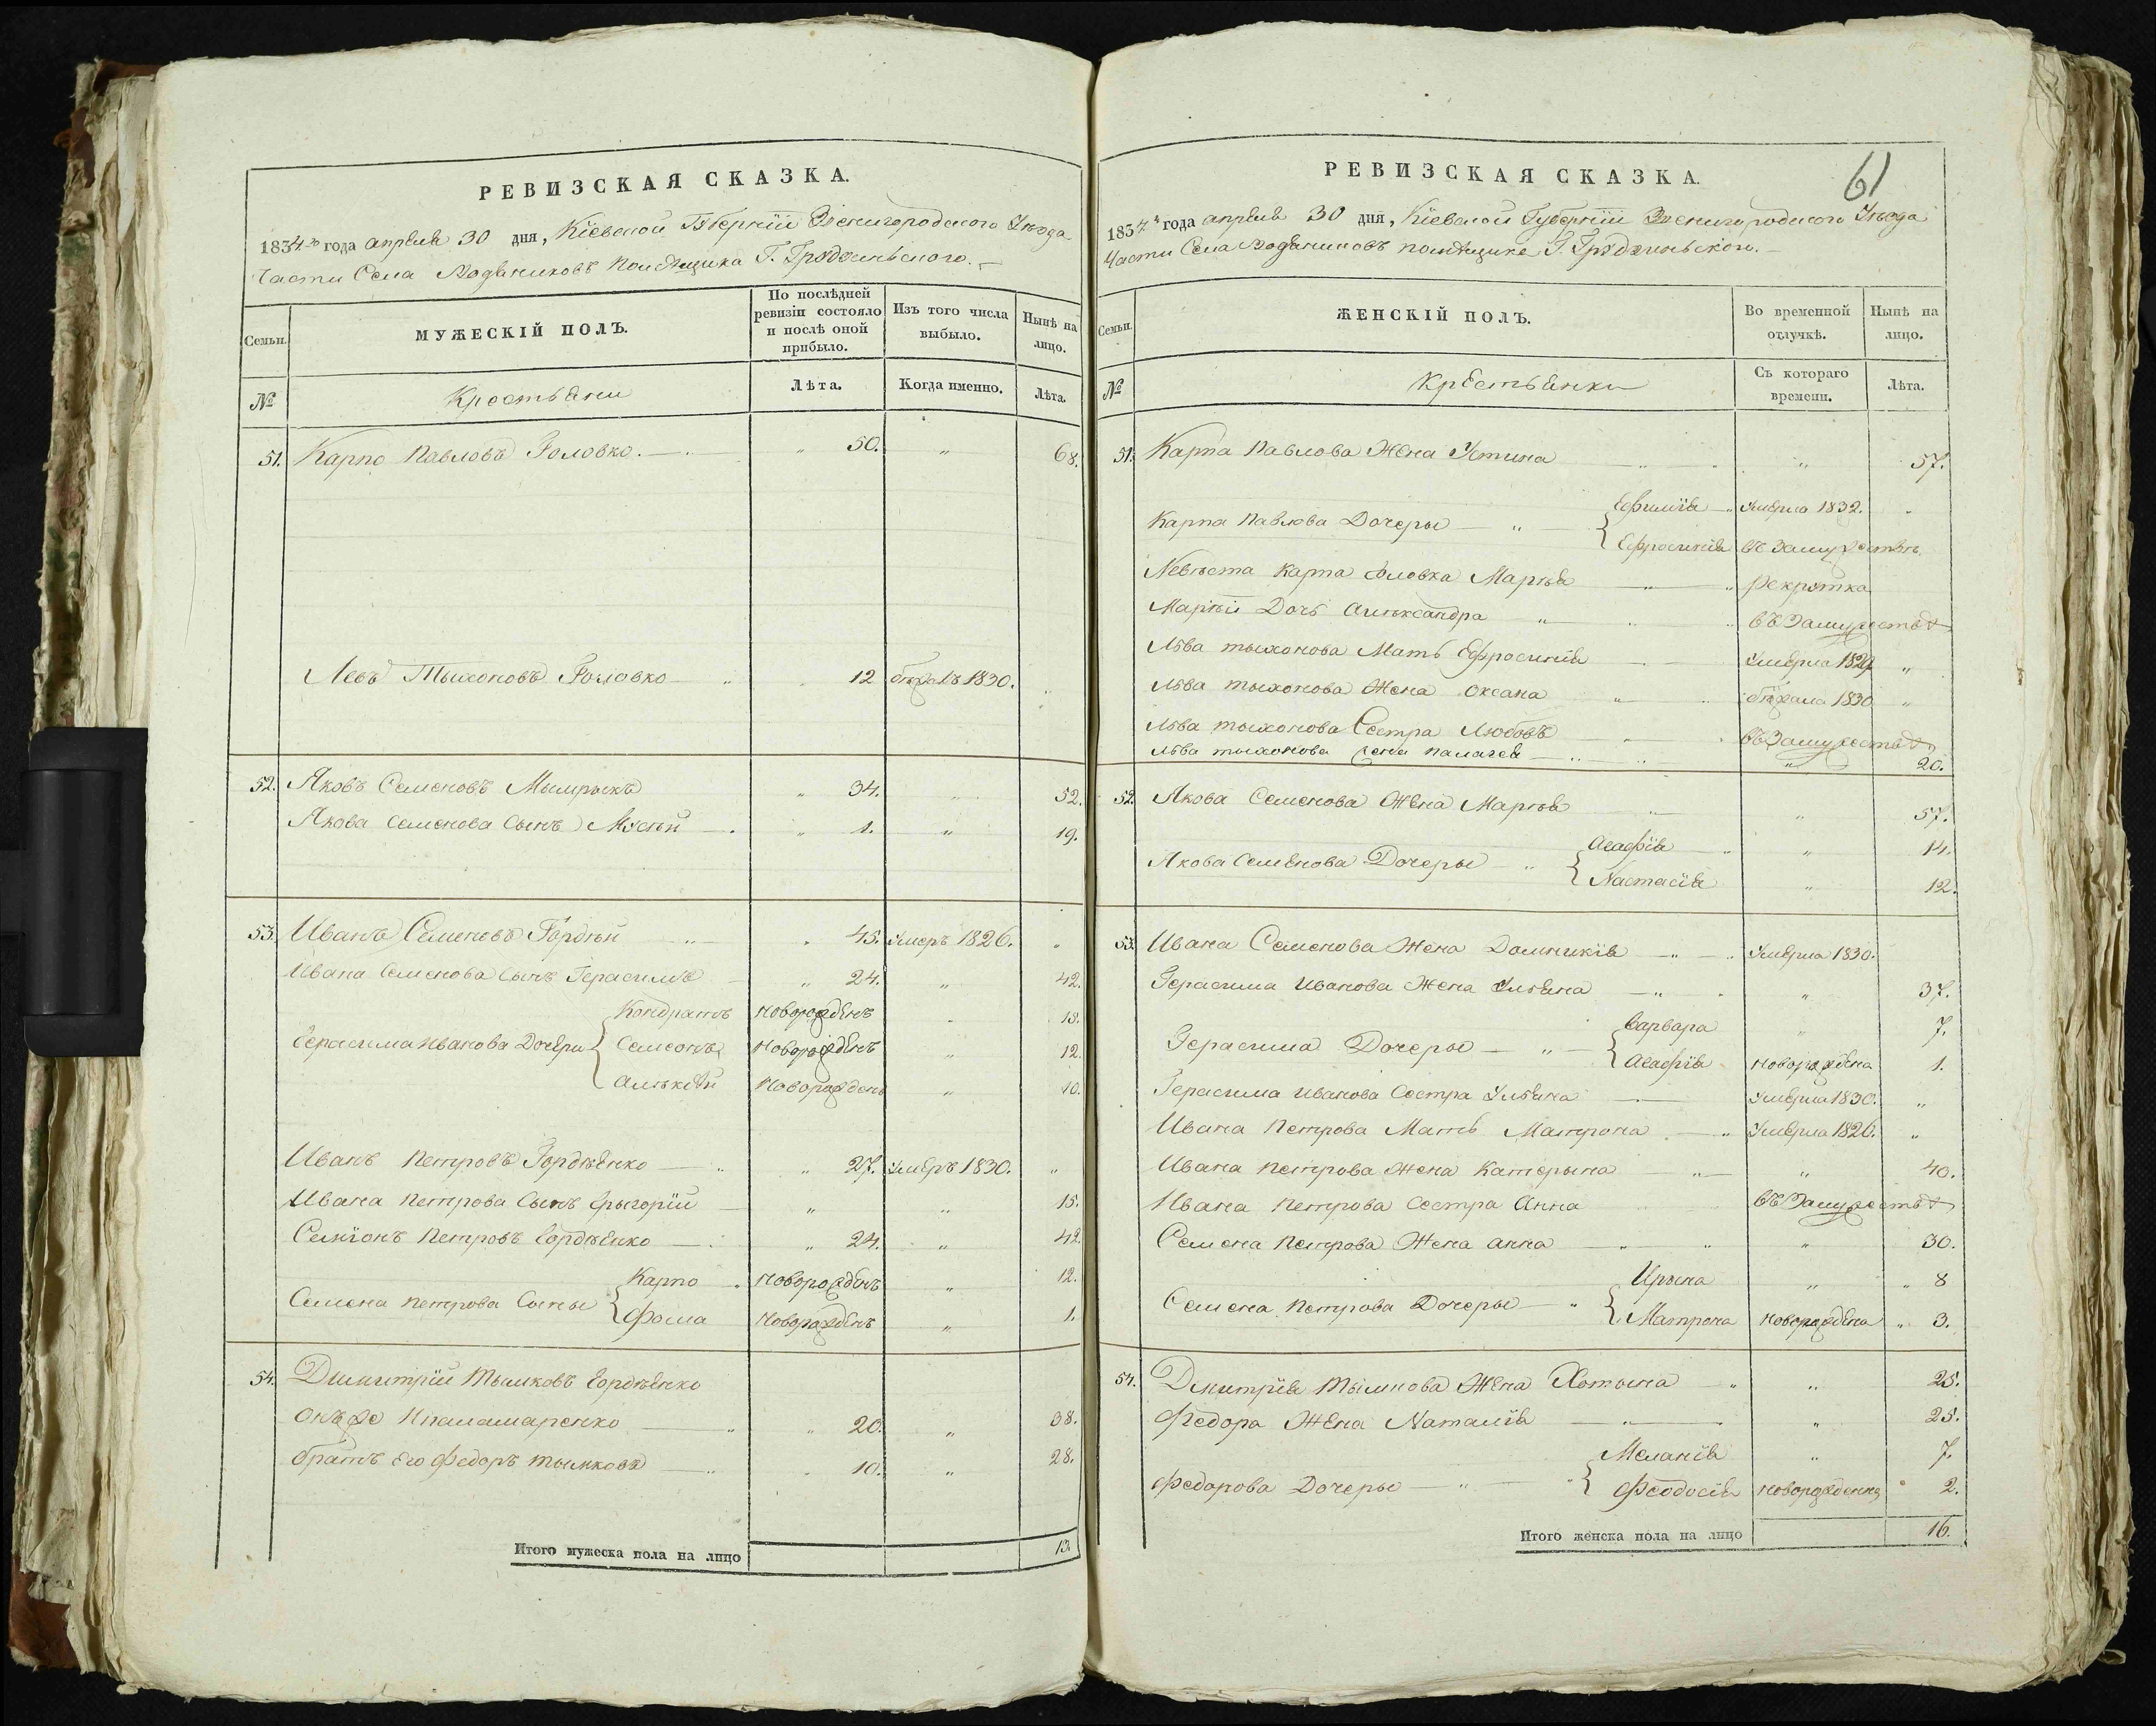 РЕВИЗСКАЯ СКАЗКА.
1834го года апреля 30 дня, Кіевской Губерніи Звенигородского Уѣзда
Части Села Водяниковъ помѣщика Г. Грудзинского.
Семьи. МУЖЕСКІЙ ПОЛЪ. По послѣдней ревизіи состояло и послѣ оной прибыло. Изъ того числа выбыло. Нынѣ на лицо.
№ Крестьяни Лѣта. Когда именно. Лѣта.
51. Карпо Павловъ Головко. 50. 68.
Левъ Тыхоновъ Головко 12 1830.
52. Яковъ Семеновъ 34. 52.
Якова Семенова Сынъ Мусѣй 1. 19.
53. Иванъ Семеновъ Гордѣй 45. Умеръ 1826.
Ивана Семенова Сынъ Герасимъ 24. 42.
Герасима Иванова Кондратъ новорожденъ 13.
Семеонъ новорожденъ 12.
Алѣксѣй новорожденъ 10.
Иванъ Петровъ Гордѣенко 27. Умеръ 1830.
Ивана Петрова Сынъ Грыгорій 15.
Семіонъ Петровъ Гордѣенко 24. 42.
Семена Петрова Сыны Карпо новорожденъ 12.
Фома новорожденъ 1.
54. Димитрій Тымковъ Гордѣенко
Онъ же Паламаренко 20. 38.
братъ Его Федоръ Тымковъ 10. 28.
Итого мужеска пола на лицо 13.
61
РЕВИЗСКАЯ СКАЗКА.
1834го года апреля 30 дня, Кіевской Губерніи Звенигородского Уѣзда
Части Села Водяниковъ помѣщика Г. Грудзинского.
Семьи. ЖЕНСКІЙ ПОЛЪ. Во временной отлучкѣ. Нынѣ на лицо.
№ Крестьянки Съ котораго времени. Лѣта.
51. Карпа Павлова Жена Устина 57.
Карпа Павлова Дочеры Умерла 1832.
Ефросинія въ Замужествѣ
Невѣста Карпа Головка Марія рекрутка
Маріи Дочь Алѣксандра въ Замужествѣ
Льва тыхонова Мать Ефросинія Умерла 1829
Льва тыхонова Жена Оксана 1830
Льва тыхонова Сестра Любовъ въ Замужествѣ
Льва тыхонова жена палагея 20.
52. Якова Семенова Жена Марія 57.
Якова Семенова Дочеры Агафія 14.
Настасія 12.
53. Ивана Семенова Жена Домникія Умерла 1830.
Герасима Иванова Жена Ульяна 37.
Герасима Дочеры Варвара 7.
Агафія новорождена 1.
Герасима Иванова Сестра Ульяна Умерла 1830.
Ивана Петрова Мать Матрона Умерла 1826.
Ивана Петрова Жена Катерына 40.
Ивана Петрова Сестра Анна въ Замужествѣ
Семена Петрова Жена анна 30.
Семена Петрова Дочеры Ирына 8
Матрона новорождена 3.
54. Дмитрія Тымкова Жена 25.
Федора Жена Наталія 25.
Федорова Дочеры Меланія 7.
Феодосія новорожденна 2.
Итого женска пола на лицо 16.